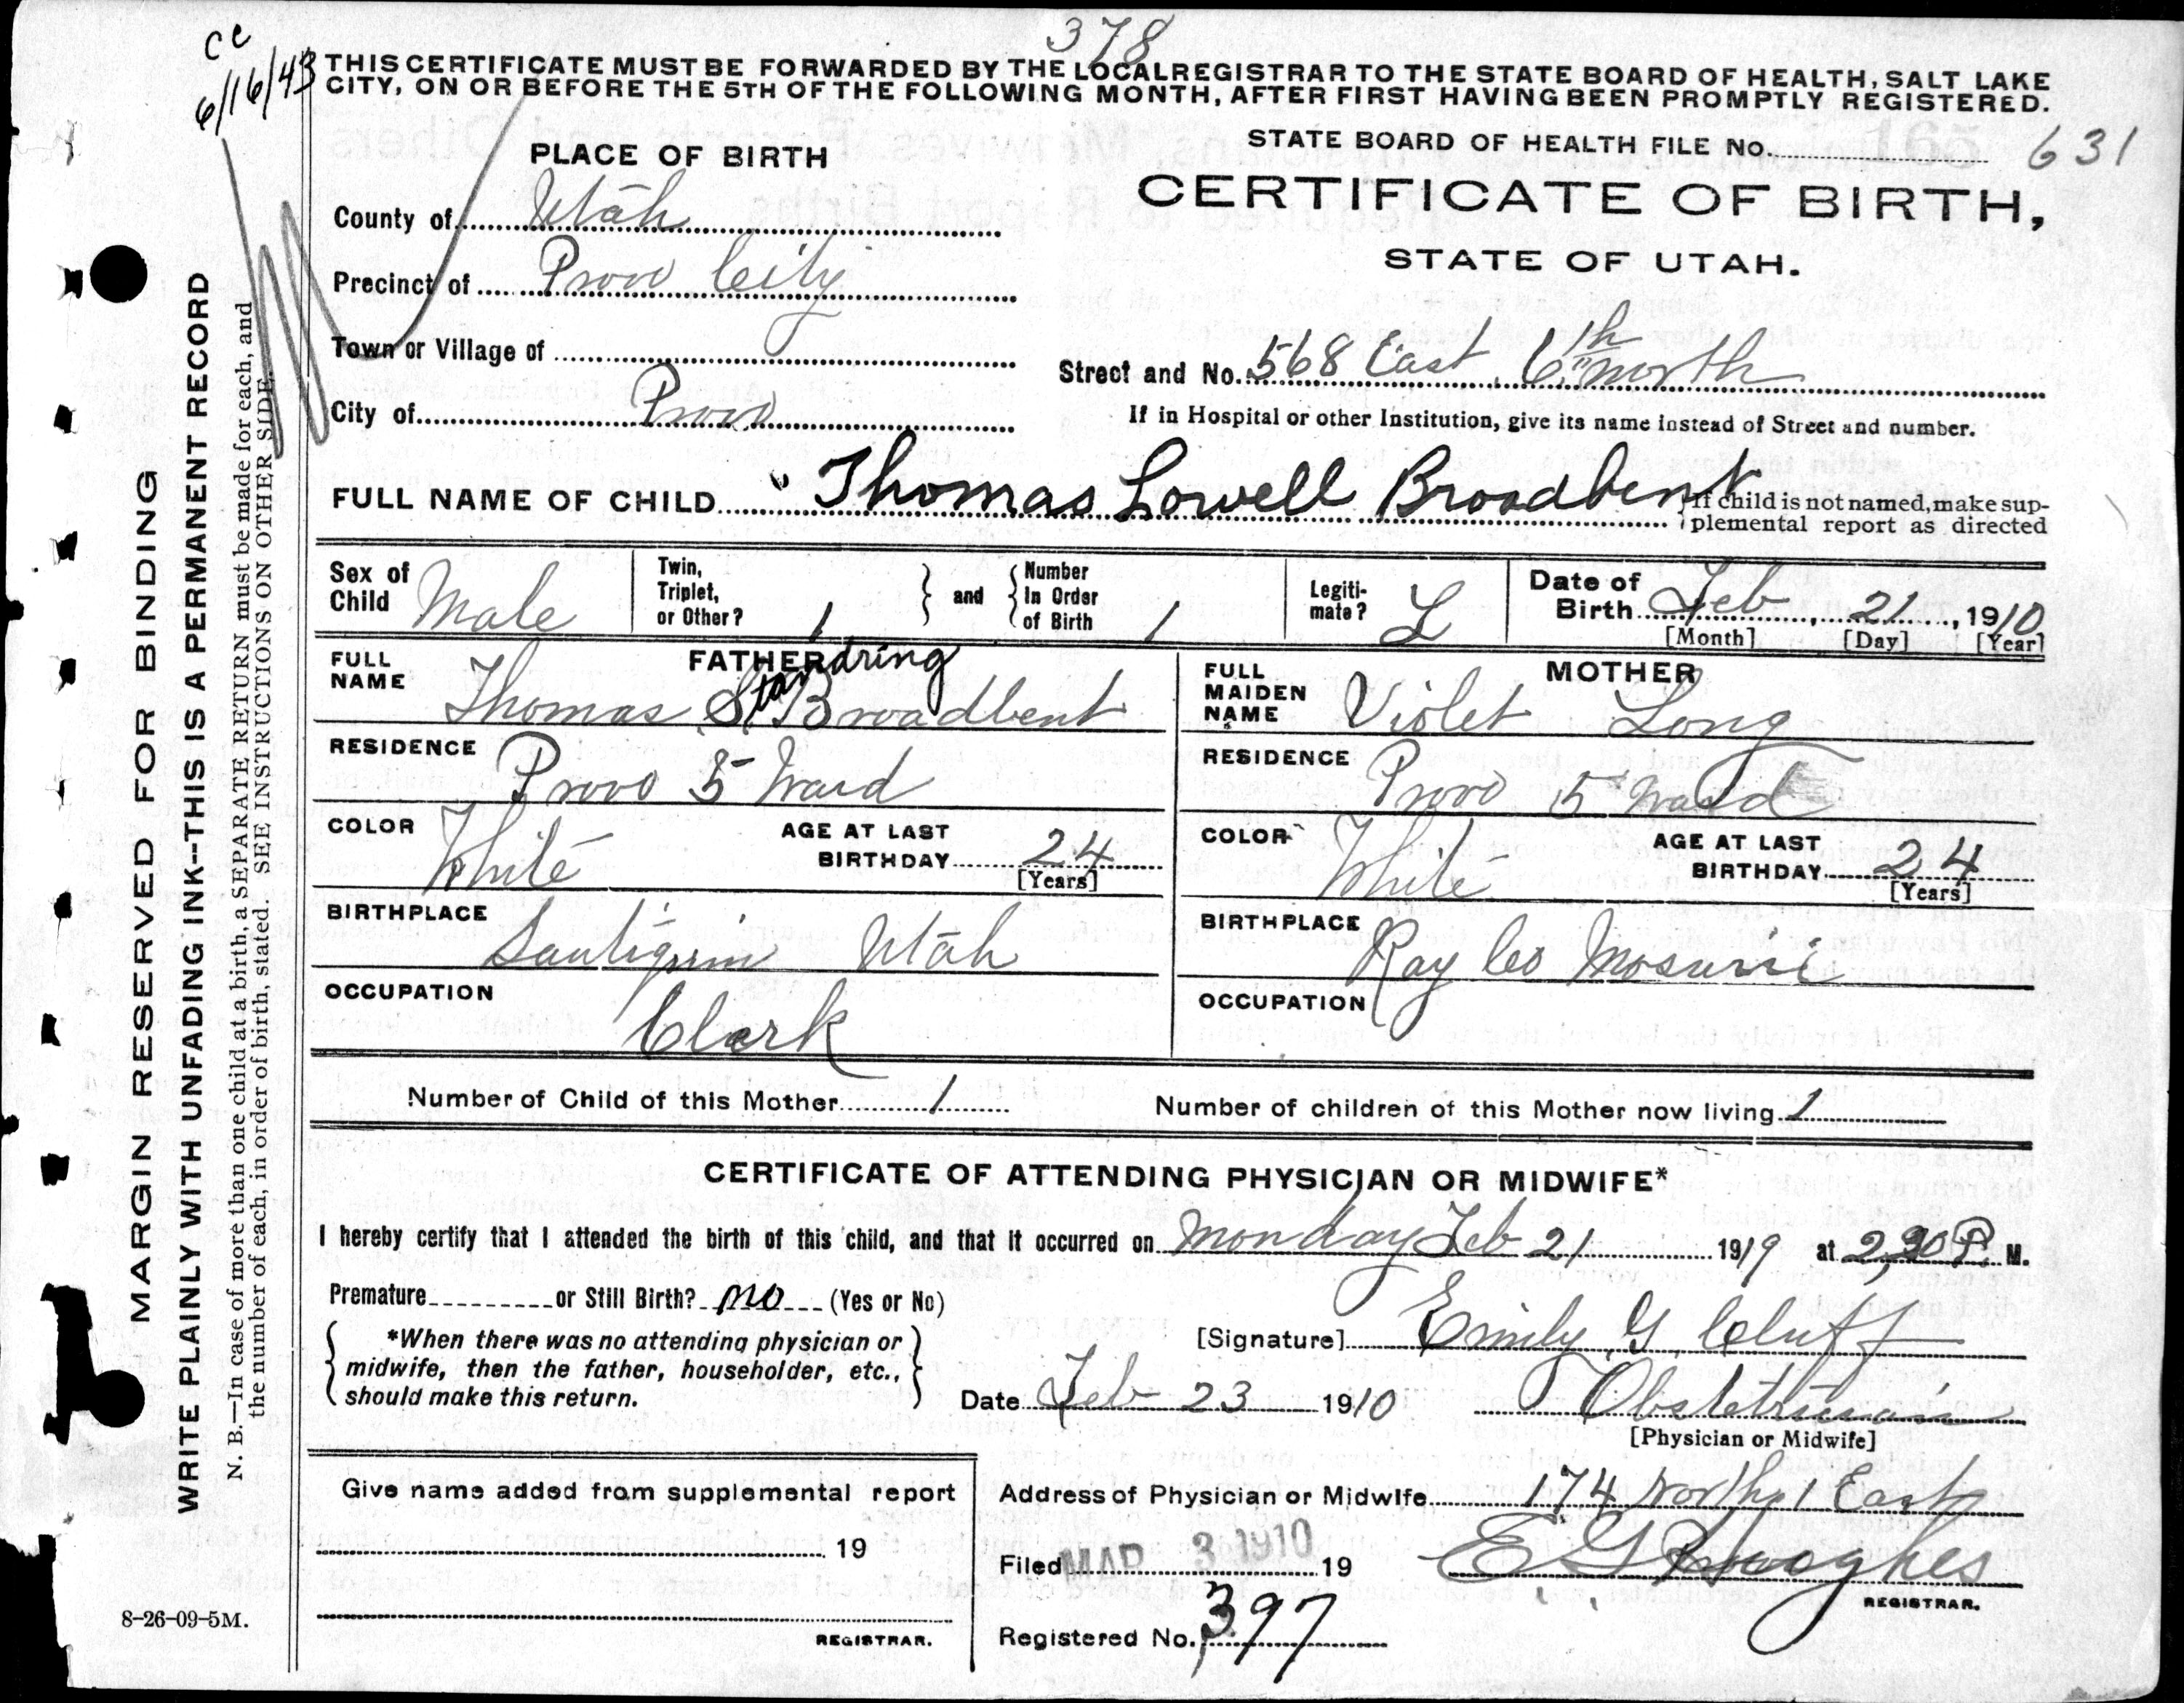 378
cc
6/16/43
THIS CERTIFICATE MUST BE FORWARDED BY THE LOCAL REGISTRAR TO THE STATE BOARD OF HEALTH, SALT LAKE
CITY, ON OR BEFORE THE 5TH OF THE FOLLOWING MONTH, AFTER FIRST HAVING BEEN PROMPTLY REGISTERED.
STATE BOARD OF HEALTH FILE No. 165 631
CERTIFICATE OF BIRTH,
STATE OF UTAH.
PLACE OF BIRTH
County of Utah
Precinct of Provo City
Town or Village of
Street and No. 568 East 6th North
City of Provo
If in Hospital or other Institution, give its name instead of Street and number.
FULL NAME OF CHILD Thomas Lowell Broadbent
If child is not named, make sup-
plemental report as directed
Sex of Child Male
Twin, Triplet, or Other? 1 and Number In Order of Birth 1
Legiti-mate? L
Date of Birth Feb, 21, 1910
[Month] [Day] [Year]
FATHER
FULL NAME Thomas Standring Broadbent
RESIDENCE Provo 5 Ward
COLOR White AGE AT LAST BIRTHDAY 24
[Years]
BIRTHPLACE Santiquin Utah
OCCUPATION Clerk
MOTHER
FULL MAIDEN NAME Violet Long
RESIDENCE Provo 5 Ward
COLOR White AGE AT LAST BIRTHDAY 24
[Years]
BIRTHPLACE Ray Co Mosurrie
OCCUPATION
Number of Child of this Mother 1 Number of children of this Mother now living. 1
CERTIFICATE OF ATTENDING PHYSICIAN OR MIDWIFE*
I hereby certify that I attended the birth of this child, and that it occurred on Monday Feb 21 1919 at 2,30 P. M.
Premature or Still Birth? no (Yes or No)
*When there was no attending physician or
midwife, then the father, householder, etc.,
should make this return.
[Signature] Emily G Cluff
Date Feb 23 1910 Obstetrician
[Physician or Midwife]
Give name added from supplemental report
19
REGISTRAR.
Address of Physician or Midwife 174 North 1 East
Filed MAR 3 1910 19
REGISTRAR.
Registered No. 397
8-26-09-5M.
MARGIN RESERVED FOR BINDING
WRITE PLAINLY WITH UNFADING INK--THIS IS A PERMANENT RECORD
N. B.—In case of more than one child at a birth, a SEPARATE RETURN must be made for each, and
the number of each, in order of birth, stated. SEE INSTRUCTIONS ON OTHER SIDE.